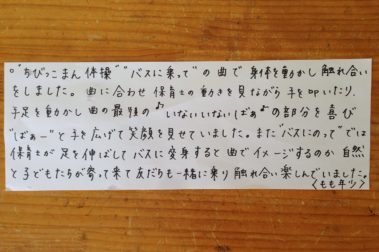 ○"ちびっこまん体操""バスに乗って"の曲で身体を動かし触れ合い
をしました。曲に合わせ保育士の動きを見ながら手を叩いたり、
手足を動かし曲の最後の♪いないいないばぁ♪の部分を喜び
"ばぁー"と手を広げて笑顔を見せていました。また"バスにのって"では
保育士が足を伸ばしてバスに変身すると曲でイメージするのか自然
と子どもたちが寄って来て友だちも一緒に乗り触れ合い楽しんでいました。
〈もも年少〉